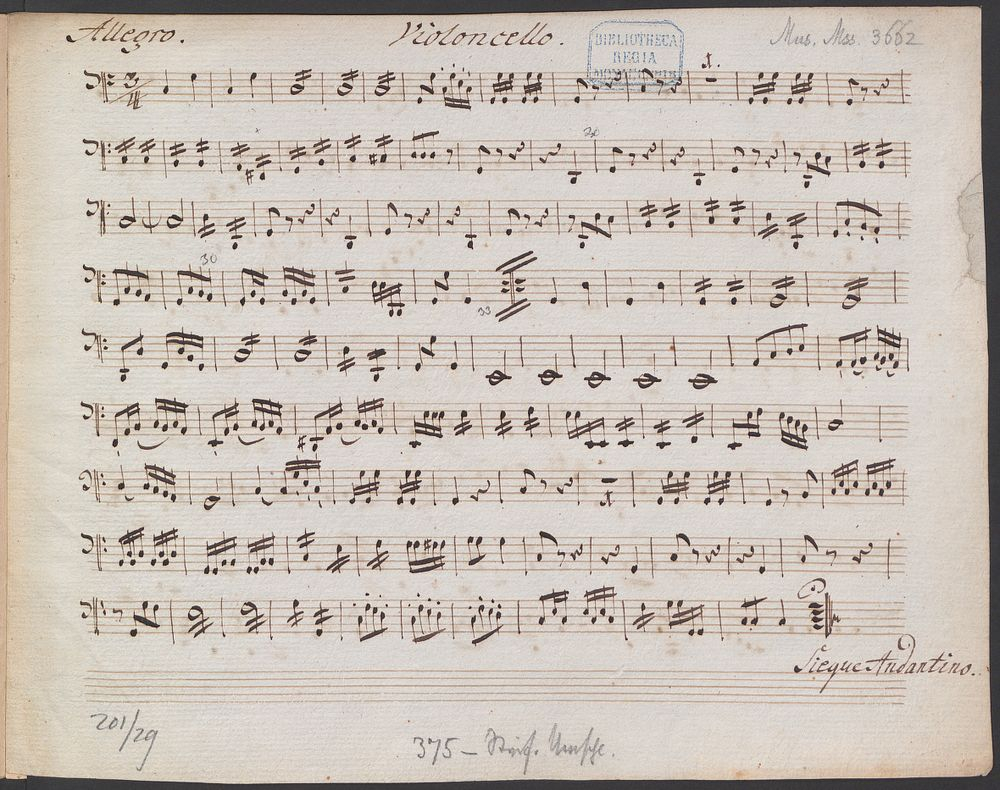 Allegro. Violoncello. Mus. Mss. 3662
BIBLIOTHECA
REGIA
MONACENSIS
3/4 1.
20
30
33
Siegue Andantino.
201/29
375 —